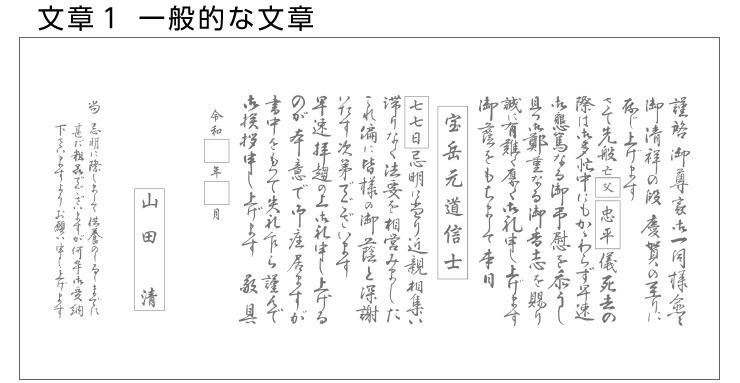 文章1 一般的な文章
謹啓 御尊家御一同様愈々
御清祥の段 慶賀の至りに
存じ上げます
さて先般亡父 忠平 儀死去の
際は御多忙中にもかゝわらず早速
御懇篤なる御弔慰を忝うし
且つ御鄭重なる御芳志を賜り
誠に有難く厚く御礼申し上げます
御蔭をもちまして本日
宝岳元道信士
七七日忌明に当り近親相集い
滞りなく法要を相営みました
これ偏に皆様の御蔭と深謝
いたす次第でございます
早速拝趨の上御礼申し上げる
のが本意で御座居ますが
書中をもって失礼乍ら謹んで
御挨拶申し上げます 敬具
令和 年 月
山田 清
尚 忌明に際しまして供養のしるしまでに
甚だ粗品でございますが何卒御受納
下さいますようお願い申し上げます